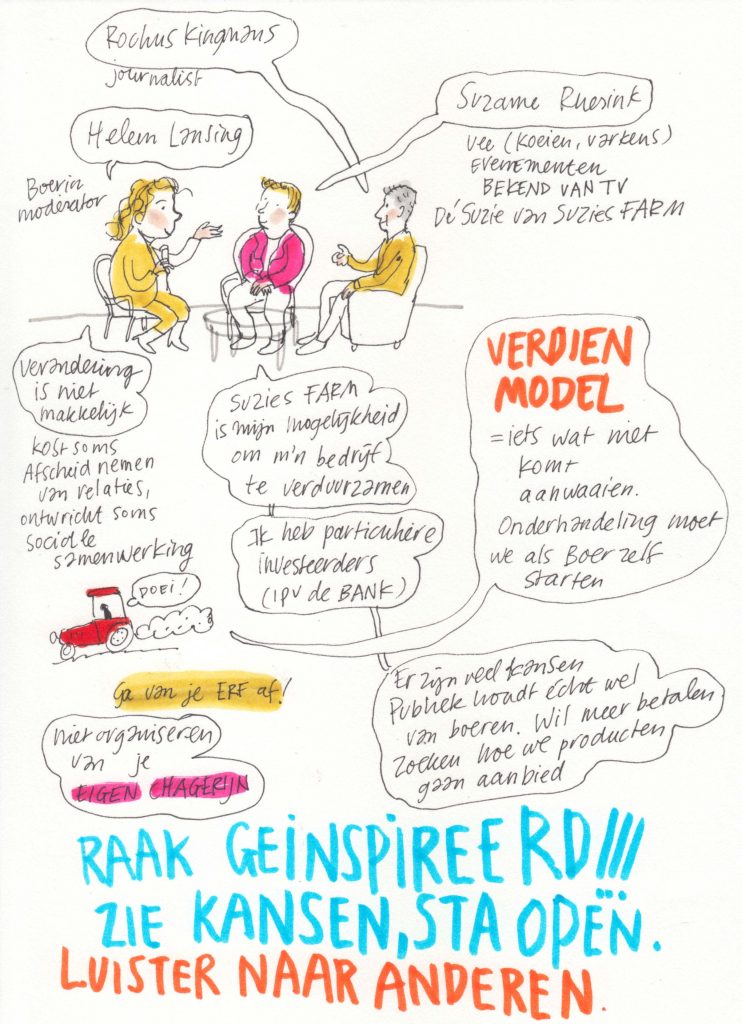 Rochus Kingmans
journalist
Helem Lansing
Boerin
moderator
Suzanne Ruesink
vee (koeien, varkens)
EVENEMENTEN
BEKEND VAN TV
Dé Suzie van Suzies FARM
Verandering
is niet
makkelijk
kost soms
Afscheid nemen
van relaties,
ontwricht soms
sociale
samenwerking
DOEI!
Suzies FARM
is mijn mogelijkheid
om m'n bedrijf
te verduurzamen
Ik heb particuliere
investeerders
(IPV de BANK)
VERDIEN
MODEL
= iets wat niet
komt
aanwaaien.
Onderhandeling moet
we als Boer zelf
starten
Er zijn veel kansen
Publiek houdt écht wel
van boeren. Wil meer betalen
zoeken hoe we producten
gaan aanbied
Ga van je ERF af!
niet organiseren
van je
EIGEN CHAGERIJN
RAAK GEINSPIREERD!!!
ZIE KANSEN, STA OPEN.
LUISTER NAAR ANDEREN.